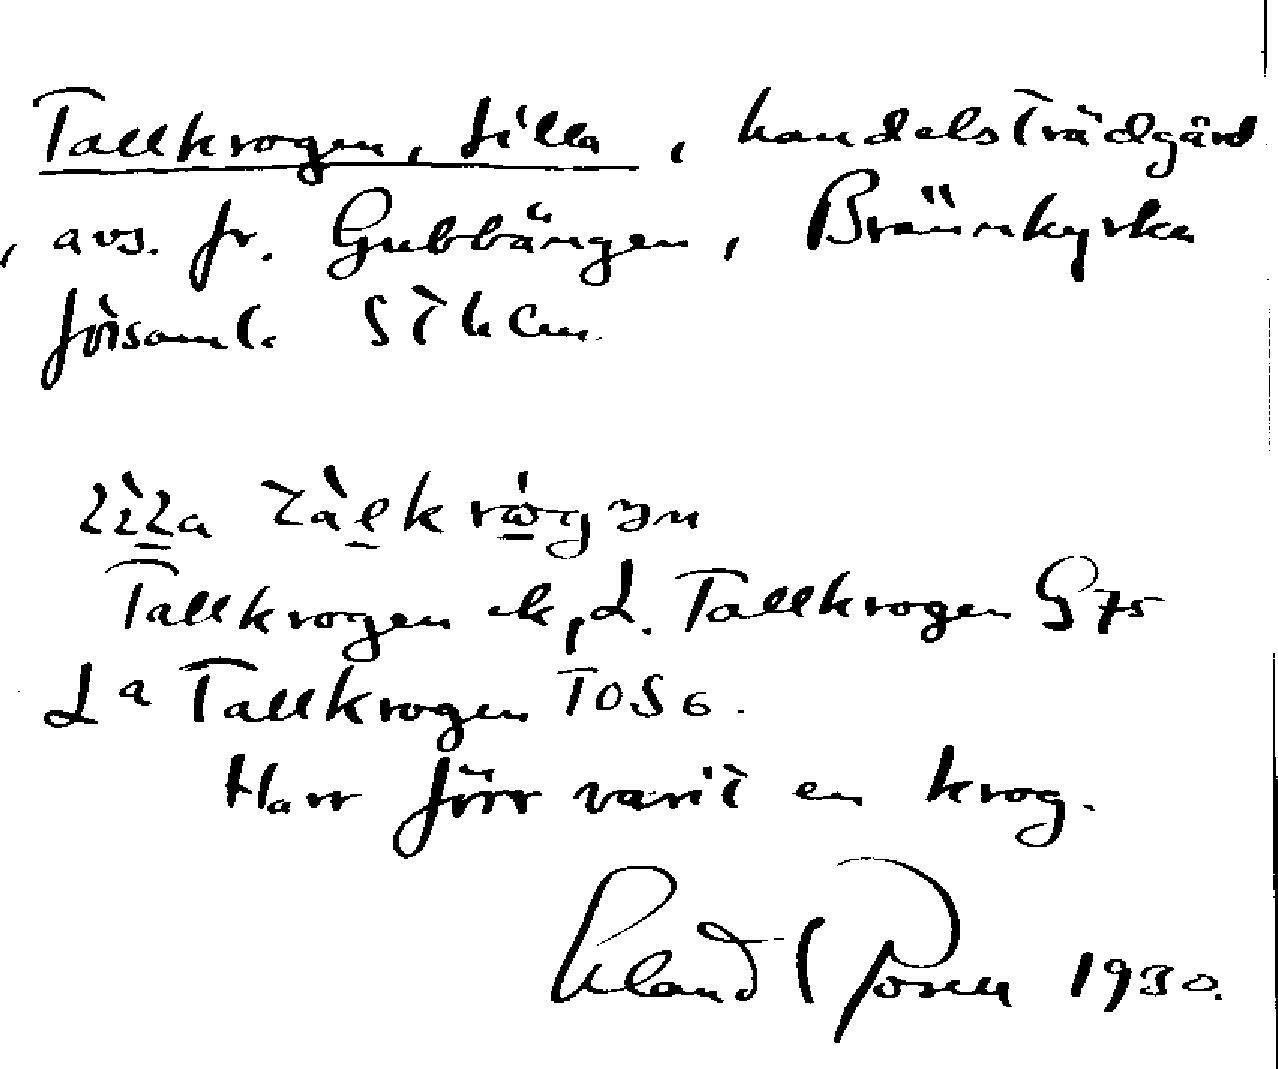 Tallkrogen, lilla, handelsträdgård
, avs. fr. Gubbängen, Brännkyrka
församl. Sthlm.
Tallkrogen ek, L. Tallkrogen G 75
La Tallkrogen TOS 6.
Har förr varit en krog.
Roland 1930.